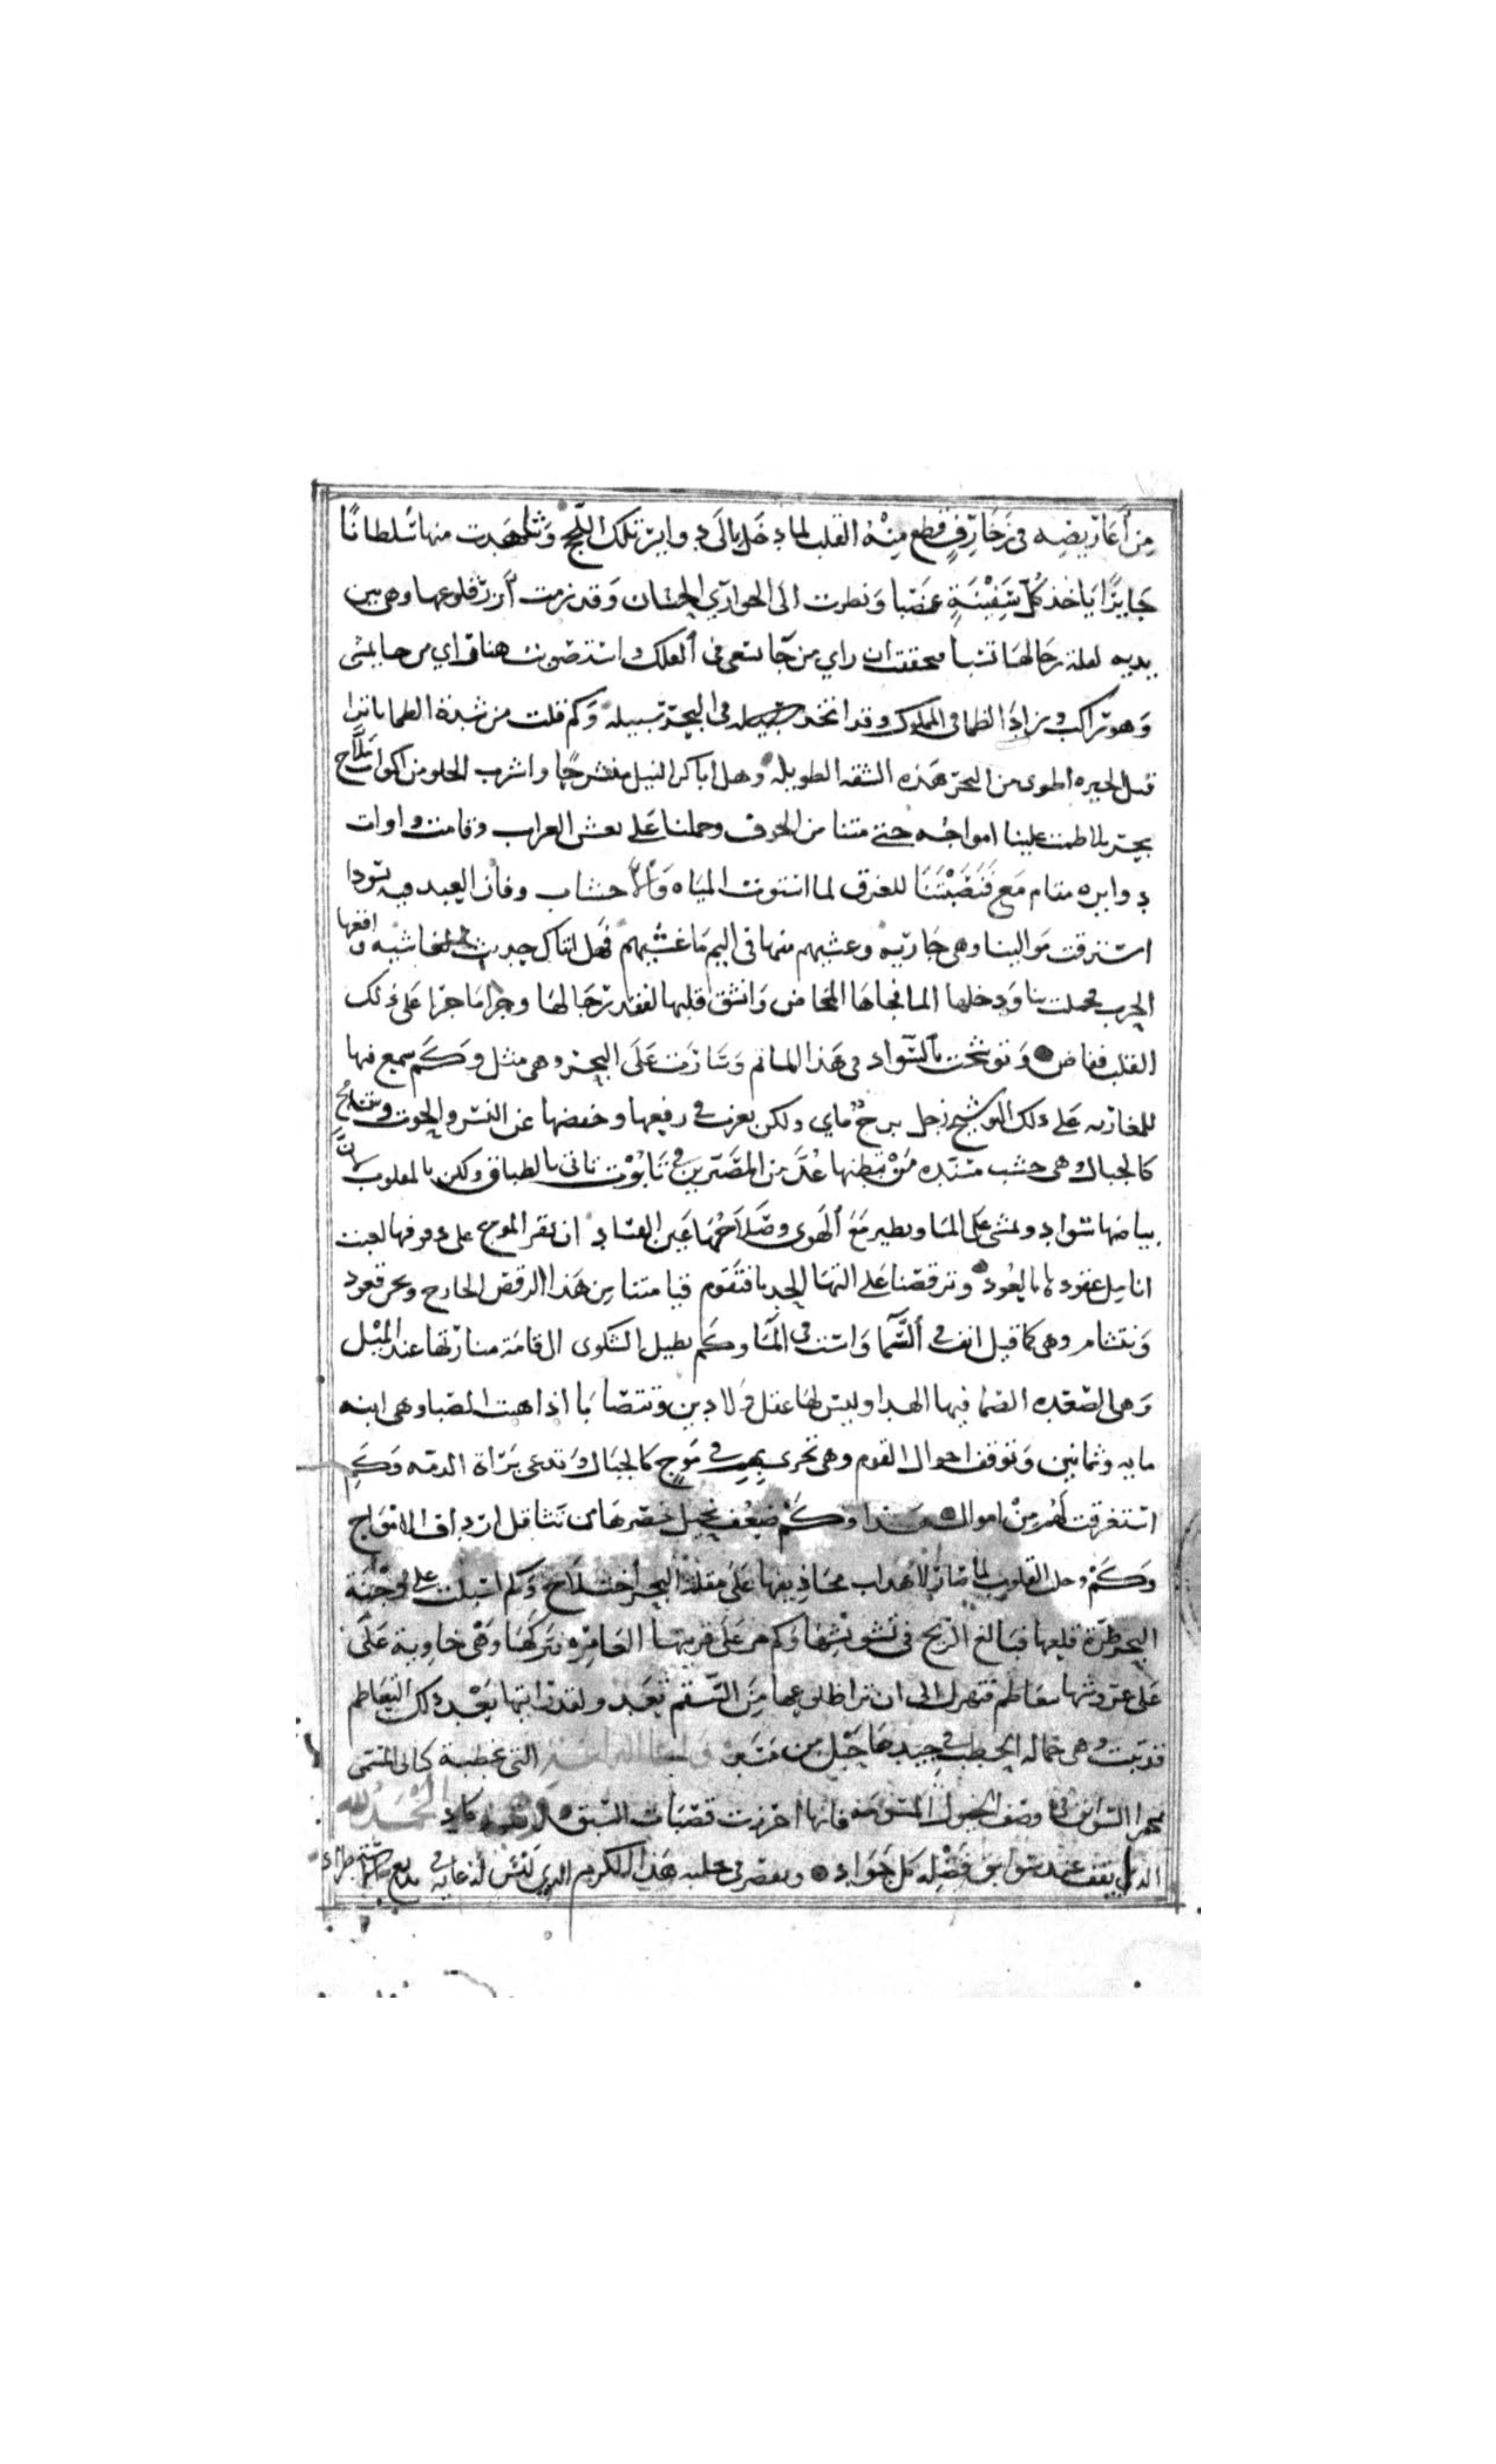 من أعاريضه في زحاف قطع منه القلب لما دخل إلى دوائر تلك اللجج وشاهدت منها سلطانا
جايرا ياخذ كل سفينة غصبا ونظرت الى الجواري الحسان وقد رمت أزر قلوعها وهي بين
يديه لقلة رجالها تسبا فتحققت ان راي من جا يسعى في الفلك واستصوبت هنا راي من جا يمشي
وهو راكب وزاد الظما في المملوك وقد اتخذ سبيله في البحر سبيله وكم قلت من شدة الظما يا ترا
قبل الحفره اطوى من البحر هذه الشقه الطويله وهل اباكر النيل منشرحا واشرب الحلو من اكواب ملاح
بحر تلاطمت علينا امواجه حتى متنا من الخوف وحملنا على نعش الغراب وقامت واوات
دوايره مقام مع فنصبتنا للغرق لما استوت المياه والاخشاب وقارن العبد فيه سودا
استرقت موالينا وهي جاريه وغشيهم منها في اليم ما غشيهم فهل اتاك حديث الغاشيه واقعها
الحرب فحملت بنا ودخلها الما فجاها المخاض وانشق قلبها لفقد رجالها وجرا ما جرا على ذلك
القلب ففاض وتوشحت بالسواد في هذا الماتم وسارت على البحر وهي مثل وكم سمع فيها
للمغاربه على ذلك التوشيح زجل برج ماي ولكن تعرب في رفعها وخفضها عن النسر والحوت وتشامخ
كالجبال وهي خشب مسنده من تبطنها عد من المصبرين في تابوت تاتي بالطباق ولكن بالمقلوب لان
بياضها سواد وتمشي على الما وتطير مع الهوى وصلاحها عين الفساد ان نقر الموج على دفوفها لعبت
انامل عقوده بالعود وترقصنا على التها الحدبا فتقوم قيامتنا من هذا الرقص الخارج ونحن قعود
ونتشام وهي كما قيل انف في السما واست في الما وكم نطيل الشكوى الى قامة صاريها عند الميل
وهي الصعده الصما فيها الهدا وليس لها عقل ولا دين وتتصابا اذا هبت الصبا وهي ابنه
مايه وثمانين وتوقف احوال القوم وهي تجري بهم في موج كالجبال وتدعي براة الذمه وكم
استغرقت لهم من اموال هذا وكم ضعف نحيل خصرها عن تثاقل ارداف الامواج
وكم وجل القلوب لما صار لاهداب مجاذيفها على مقلة البحر اختلاج وكم اسبلت على وجنة
البحر طرة قلعها فبالغ الريح في تشويشها وكم مر على قريتها العامره فتركها وهي خاوية على
على عروشها تتعاظم فتهزل الى ان ترا ظلوعها من السقم تعد ولقد رايتها بعد ذلك التعاظم
قد تبت وهي حمالة الحطب في جيدها حبل من مسد التي بخطبة كتابي المسمى
مجرا السوابق في وصف الخيول المسومه فانها احرزت قصبات السبق الحمد لله
الذي يقف عند سوابق فضله كل جواد ويقصر في حلبه هذا الكرم الذي ليس له غايه